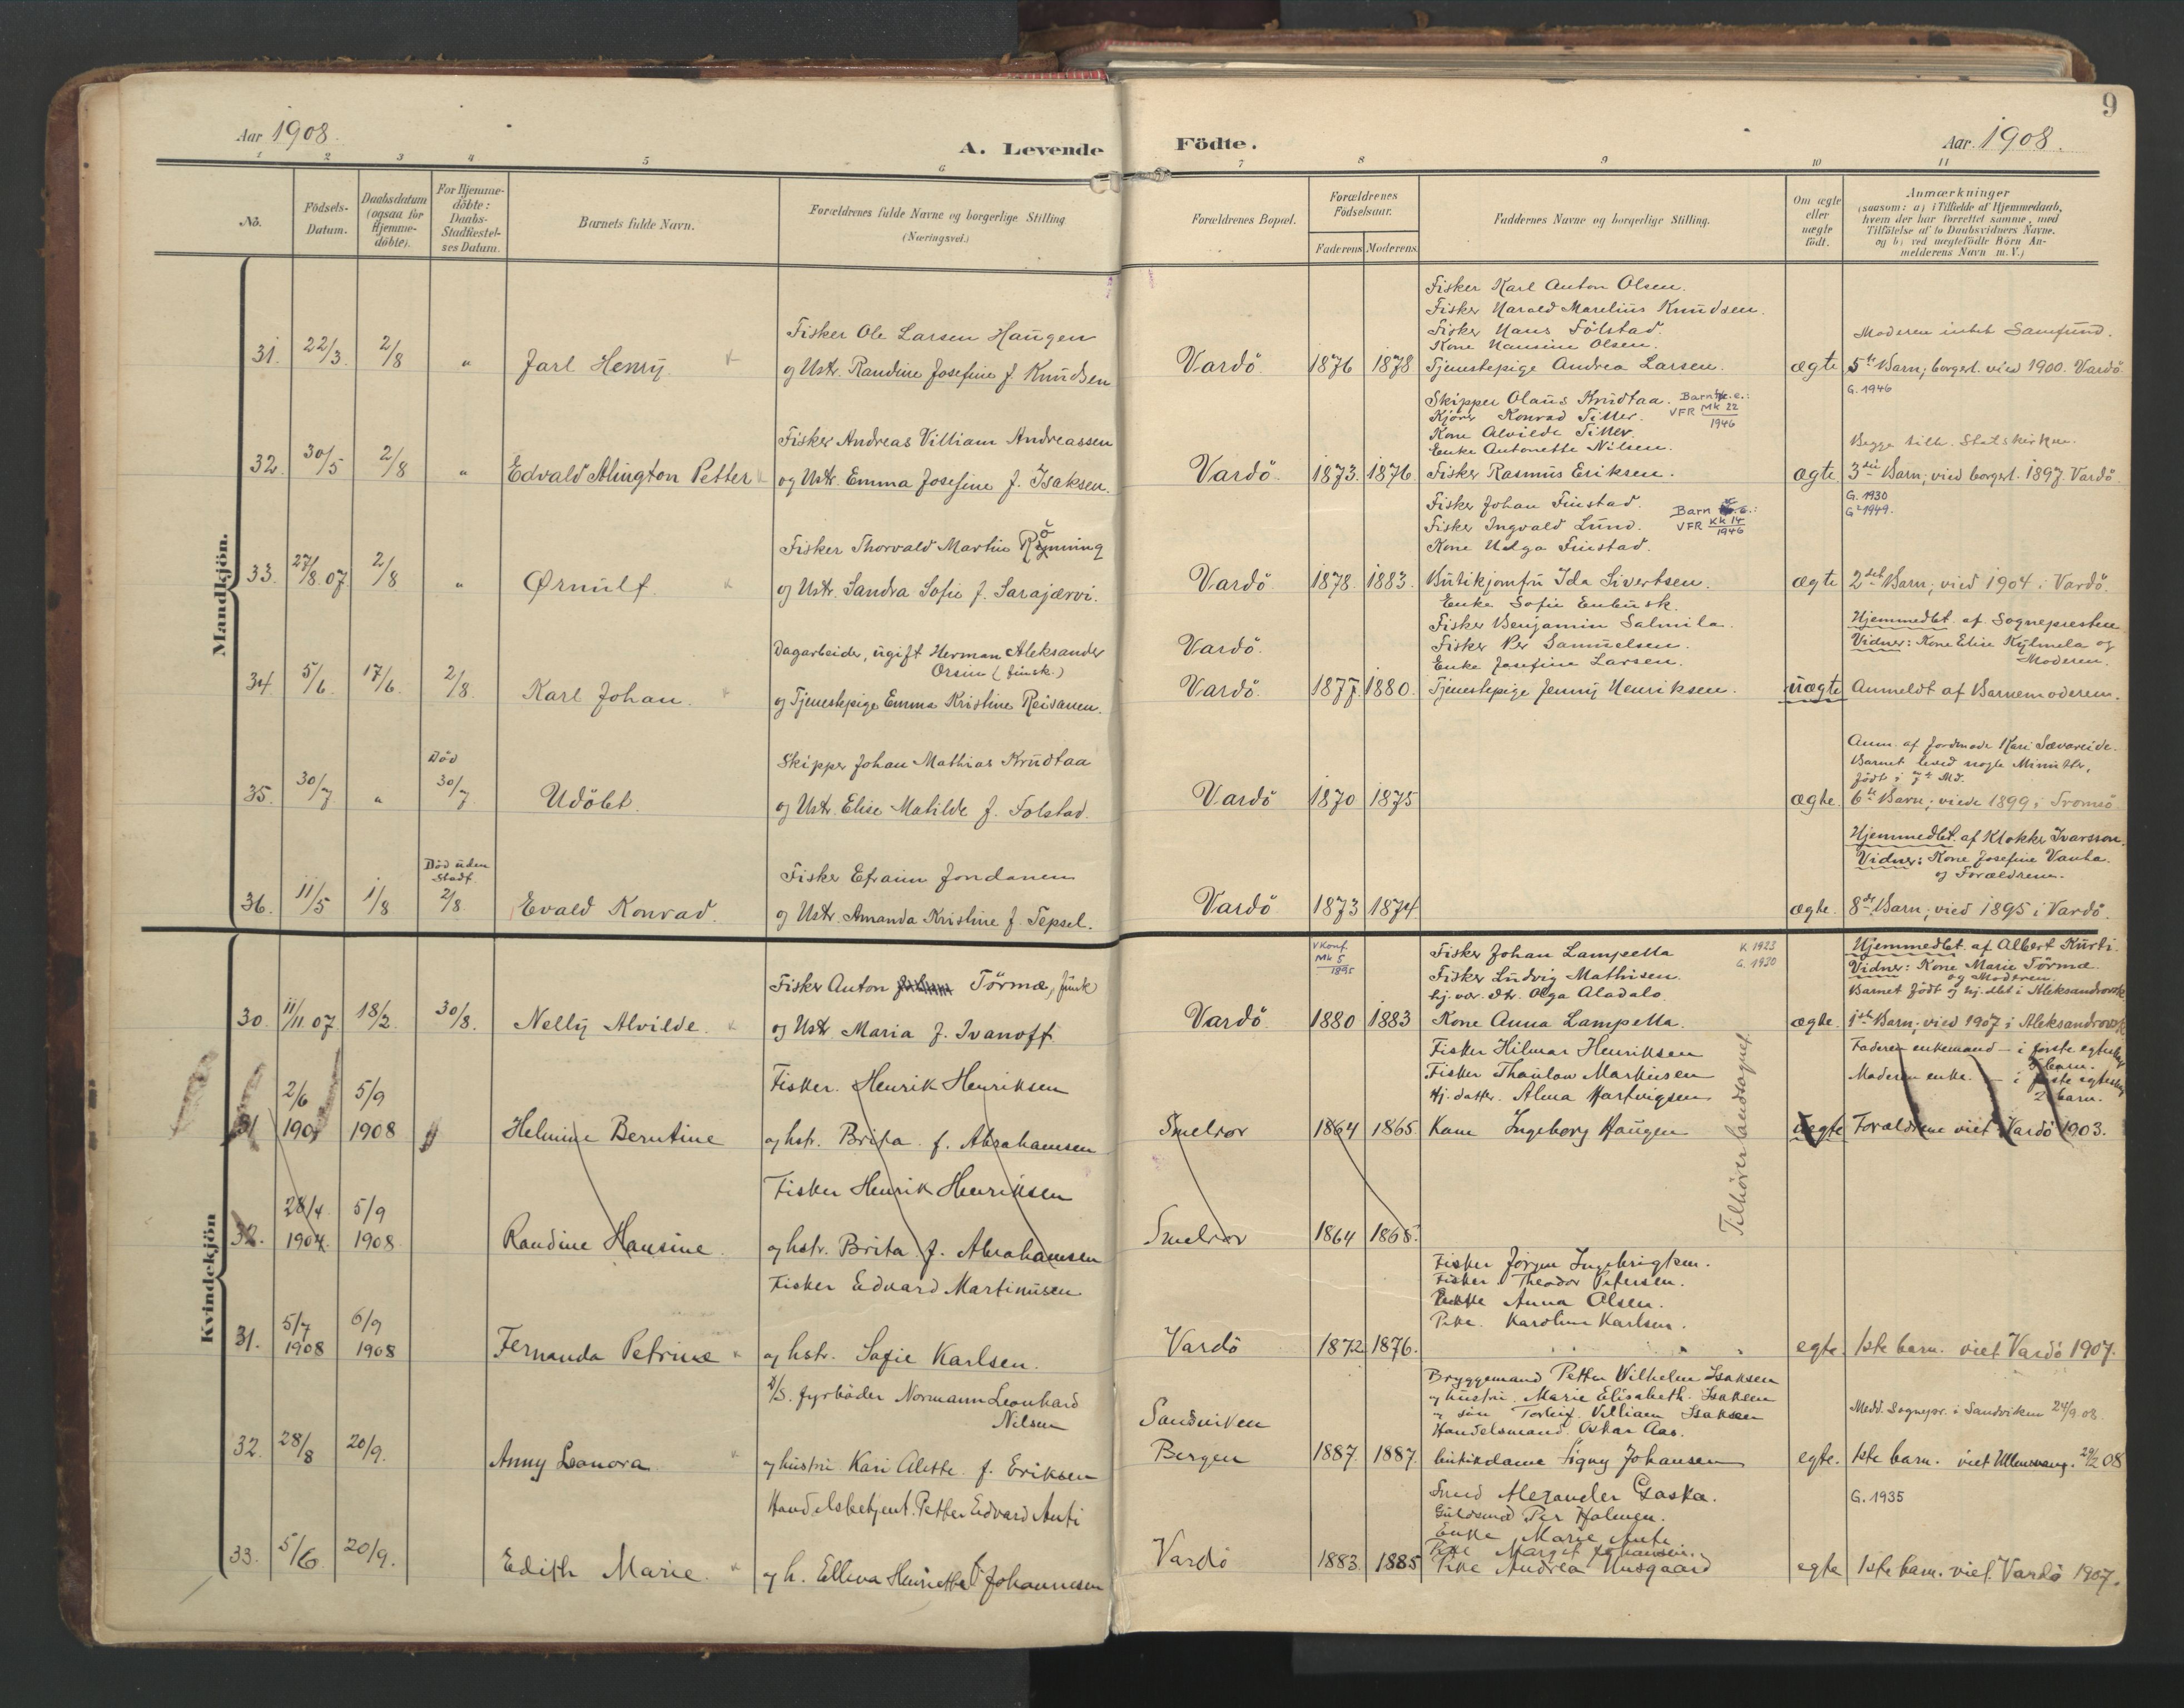 9
Aar 1908.
A. Levende Födte.
Aar. 1908.
1 2 3 4 5 6 7 8 9 10 11
No.
Födsels-
Datum.
Daabsdatum
(ogsaa for
Hjemme-
döbte).
For Hjemme-
döbte:
Daabs-
Stadfæstel-
ses Datum.
Barnets fulde Navn.
Forældrenes fulde Navne og borgerlige Stilling
(Næringsvei.)
Forældrenes Bopæl.
Forældrenes
Födselsaar.
Faderens Moderens
Faddernes Navne og borgerlige Stilling.
Om ægte
eller
uægte
födt.
Anmærkninger
(saasom: a) i Tilfælde af Hjemmedaab,
hvem der har forrettet samme, med
Tilföielse af to Daabsvidners Navne.
og b) ved uægtefödte Börn An-
melderens Navn m. V.)
Mandkjön.
31. 22/3. 2/8 " Jarl Henry
Fisker Ole Larsen Haugen
og Ustr. Randine Josefine f. Knudsen
Vardö 1876 1878
Fisker Karl Anton Olsen.
Fisker Harald Marelius Knudsen.
Fisker Hans Folstad.
Kone Hansine Olsen.
Tjenestepige Andrea Larsen.
ægte
Moderen intet Samfund.
5te Barn; borgerl. vied 1900. Vardö
G. 1946
32. 30/5 2/8 " Edvald Alington Petter
Fisker Andreas Villiam Andreassen
og Ustr. Emma Josefine f. Isaksen.
Vardö. 1873. 1876.
Skipper Olaus Krudtaa.
Kjörer Konrad Titter.
Kone Alvilde Titter.
Enke Antonette Nilsen.
Fisker Rasmus Eriksen.
VFR Mk 22
1946
ægte
Begge tilh. Statskirken.
3die Barn; vied borgerl. 1897. Vardö
G. 1930
G² 1949.
33. 27/8.07 2/8 " Ørnulf
Fisker Thorvald Martin Rönning
og Ustr. Sandra Sofie f. Sarajærvi.
Vardö. 1878. 1883.
Fisker Johan Finstad.
Fisker Ingvald Lund.
Kone Helga Finstad.
Butikjomfru Ida Sivertsen.
VFR KK 14
1946
ægte
2det Barn; vied 1904 i Vardö.
34. 5/6. 17/6. 2/8. Karl Johan.
Dagarbeider, ugift Herman Aleksander
Orsin (finsk.)
og Tjenestepige Emma Kristine Reisanen.
Vardö.
Vardö. 1877. 1880.
Enke Sofie Enbusk.
Fisker Benjamin Salmila.
Fisker Per Samuelsen.
Enke Josefine Larsen.
Tjenestepige Jenny Henriksen.
uægte
Hjemmedbt. af Sognepresten
Vidner: Kone Elise Kylmela og
Moderen.
Anmeldt af Barnemoderen.
35. 30/7 " Död
30/7. Udöbt.
Skipper Johan Mathias Krudtaa
og Ustr. Elise Matilde f. Folstad.
Vardö 1870 1875
ægte.
Anm. af Jordmode Kari Sævareide.
Barnet leved nogle Minuter,
födt i 7de Md.
6te Barn; viede 1899 i Tromsö
36. 11/5 1/8 Död uden
Stadf.
2/8. Evald Konrad.
Fisker Efraim Jondanen
og Ustr. Amanda Kristine f. Tepsel.
Vardö 1873 1874
ægte.
Hjemmedbt. af Klokker Ivarsson.
Vidner: Kone Josefine Vanha.
og Forældrene.
8de Barn; vied 1895 i Vardö.
Kvindekjön
30. 11/11.07. 18/2. 30/8. Nelly Alvilde.
Fisker Anton Törmæ, finsk
og Ustr Maria f. Ivanoff
Vardö.
V Konf.
Mk 5
1895
1880 1883
Fisker Johan Lampella
Fisker Ludvig Mathisen
hj. vær. Dtr. Olga Aladalo.
Kone Anna Lampella.
K. 1923
G. 1930
ægte.
Hjemmedbt. af Albert Kurti.
Vidner: Kone Marie Törmæ.
og Moderen.
Barnet födt og hj.dbt i Aleksandrovsk
1ste Barn; vied 1907 i Aleksandrovsk
31 2/6 5/9 1908 Helmine Berntine
Fisker. Henrik Henriksen
og hstr. Brita f. Abrahamsen
Smelror 1864 1865
Fisker Hilmar Henriksen
Fisker Thaulow Markusen
Hj. datter. Alma Hartvigsen
Kone Ingeborg Haugen
Tilhører landsognet
Faderen enkemand - i første egteskab
barn.
Moderen enke. - i første egteskab
2 barn.
Forældrene viet Vardö 1903.
32. 28/4 1904. 5/9 1908 Randine Hansine.
Fisker Henrik Henriksen
og hstr. Brita f. Abrahamsen
Smelror 1864 1865.
31. 5/7 1908 6/9 1908 Fernanda Petrine
Fisker Edvard Martinusen
og hstr. Sofie Karlsen.
Vardö 1872 1876.
Fisker Jörgen Ingebrigtsen.
Fisker Theodor Petersen.
Anna Olsen.
Pike. Karoline Karlsen.
egte.
1ste barn. viet Vardö 1907.
32. 28/8 20/9. Anny Leonora
D/S. fyrböder Normann Leonhard
Nilsen
og hustru Kari Alette. f. Eriksen
Sandviken
Bergen 1887. 1887.
Bryggemand Petter Wilhelm Isaksen
og hustru. Marie Elisabeth. Isaksen
og sön Torleif Villiam Isaksen
Handelsmand Oskar Aas.
butikdame Signy Johansen
egte.
Medd. Sognepr. i Sandviken 24/9.08.
1ste barn. viet Ullensvang. 29/2 08
G. 1935
33. 5/6. 20/9. Edith Marie.
Handelsbetjent. Petter Edvard Anti
og h. Ellena Henriette f Johannesen
Vardö 1883. 1885
Smed Alexander Gaska.
Guldsmed Per Holmen.
Enke Marie Anti
Pike Margit Johansen.
Pike Andrea Husgaard
egte
1ste barn. viet. Vardö 1907.